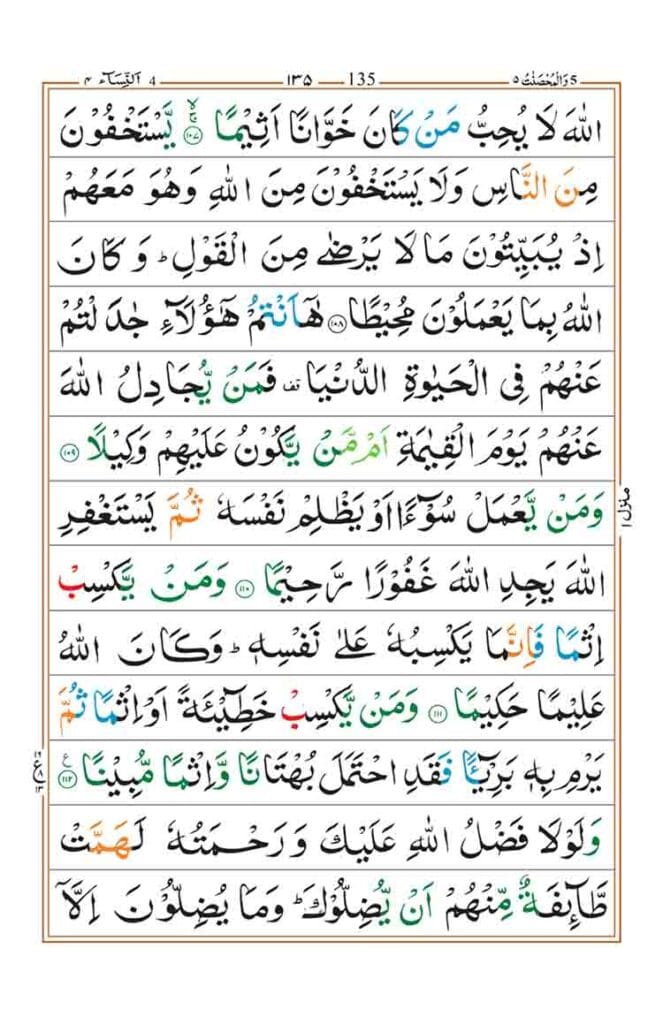 5 وَالْمُحْصَنٰتُ ٥ 135 ١٣٥ 4 اَلنِّسَآء ٤
اللّٰهَ لَا يُحِبُّ مَنْ كَانَ خَوَّانًا اَثِيْمًا ۙ﴿١٠٧﴾ يَّسْتَخْفُوْنَ
مِنَ النَّاسِ وَلَا يَسْتَخْفُوْنَ مِنَ اللّٰهِ وَهُوَ مَعَهُمْ
اِذْ يُبَيِّتُوْنَ مَا لَا يَرْضٰى مِنَ الْقَوْلِ ؕ وَ كَانَ
اللّٰهُ بِمَا يَعْمَلُوْنَ مُحِيْطًا ﴿١٠٨﴾ هٰۤاَنْتُمْ هٰۤؤُلَآءِ جٰدَلْتُمْ
عَنْهُمْ فِى الْحَيٰوةِ الدُّنْيَا قف فَمَنْ يُّجَادِلُ اللّٰهَ
عَنْهُمْ يَوْمَ الْقِيٰمَةِ اَمْ مَّنْ يَّكُوْنُ عَلَيْهِمْ وَكِيْلًا ﴿١٠٩﴾
وَمَنْ يَّعْمَلْ سُوْٓءًا اَوْ يَظْلِمْ نَفْسَهٗ ثُمَّ يَسْتَغْفِرِ
منزل ١
اللّٰهَ يَجِدِ اللّٰهَ غَفُوْرًا رَّحِيْمًا ﴿١١٠﴾ وَمَنْ يَّكْسِبْ
اِثْمًا فَاِنَّمَا يَكْسِبُهٗ عَلٰى نَفْسِهٖ ؕ وَكَانَ اللّٰهُ
عَلِيْمًا حَكِيْمًا ﴿١١١﴾ وَمَنْ يَّكْسِبْ خَطِيْٓئَةً اَوْ اِثْمًا ثُمَّ
يَرْمِ بِهٖ بَرِيْٓـًٔا فَقَدِ احْتَمَلَ بُهْتَانًا وَّاِثْمًا مُّبِيْنًا ﴿١١٢﴾ ع
وَلَوْلَا فَضْلُ اللّٰهِ عَلَيْكَ وَ رَحْمَتُهٗ لَهَمَّتْ
طَّآئِفَةٌ مِّنْهُمْ اَنْ يُّضِلُّوْكَ ؕ وَمَا يُضِلُّوْنَ اِلَّاۤ